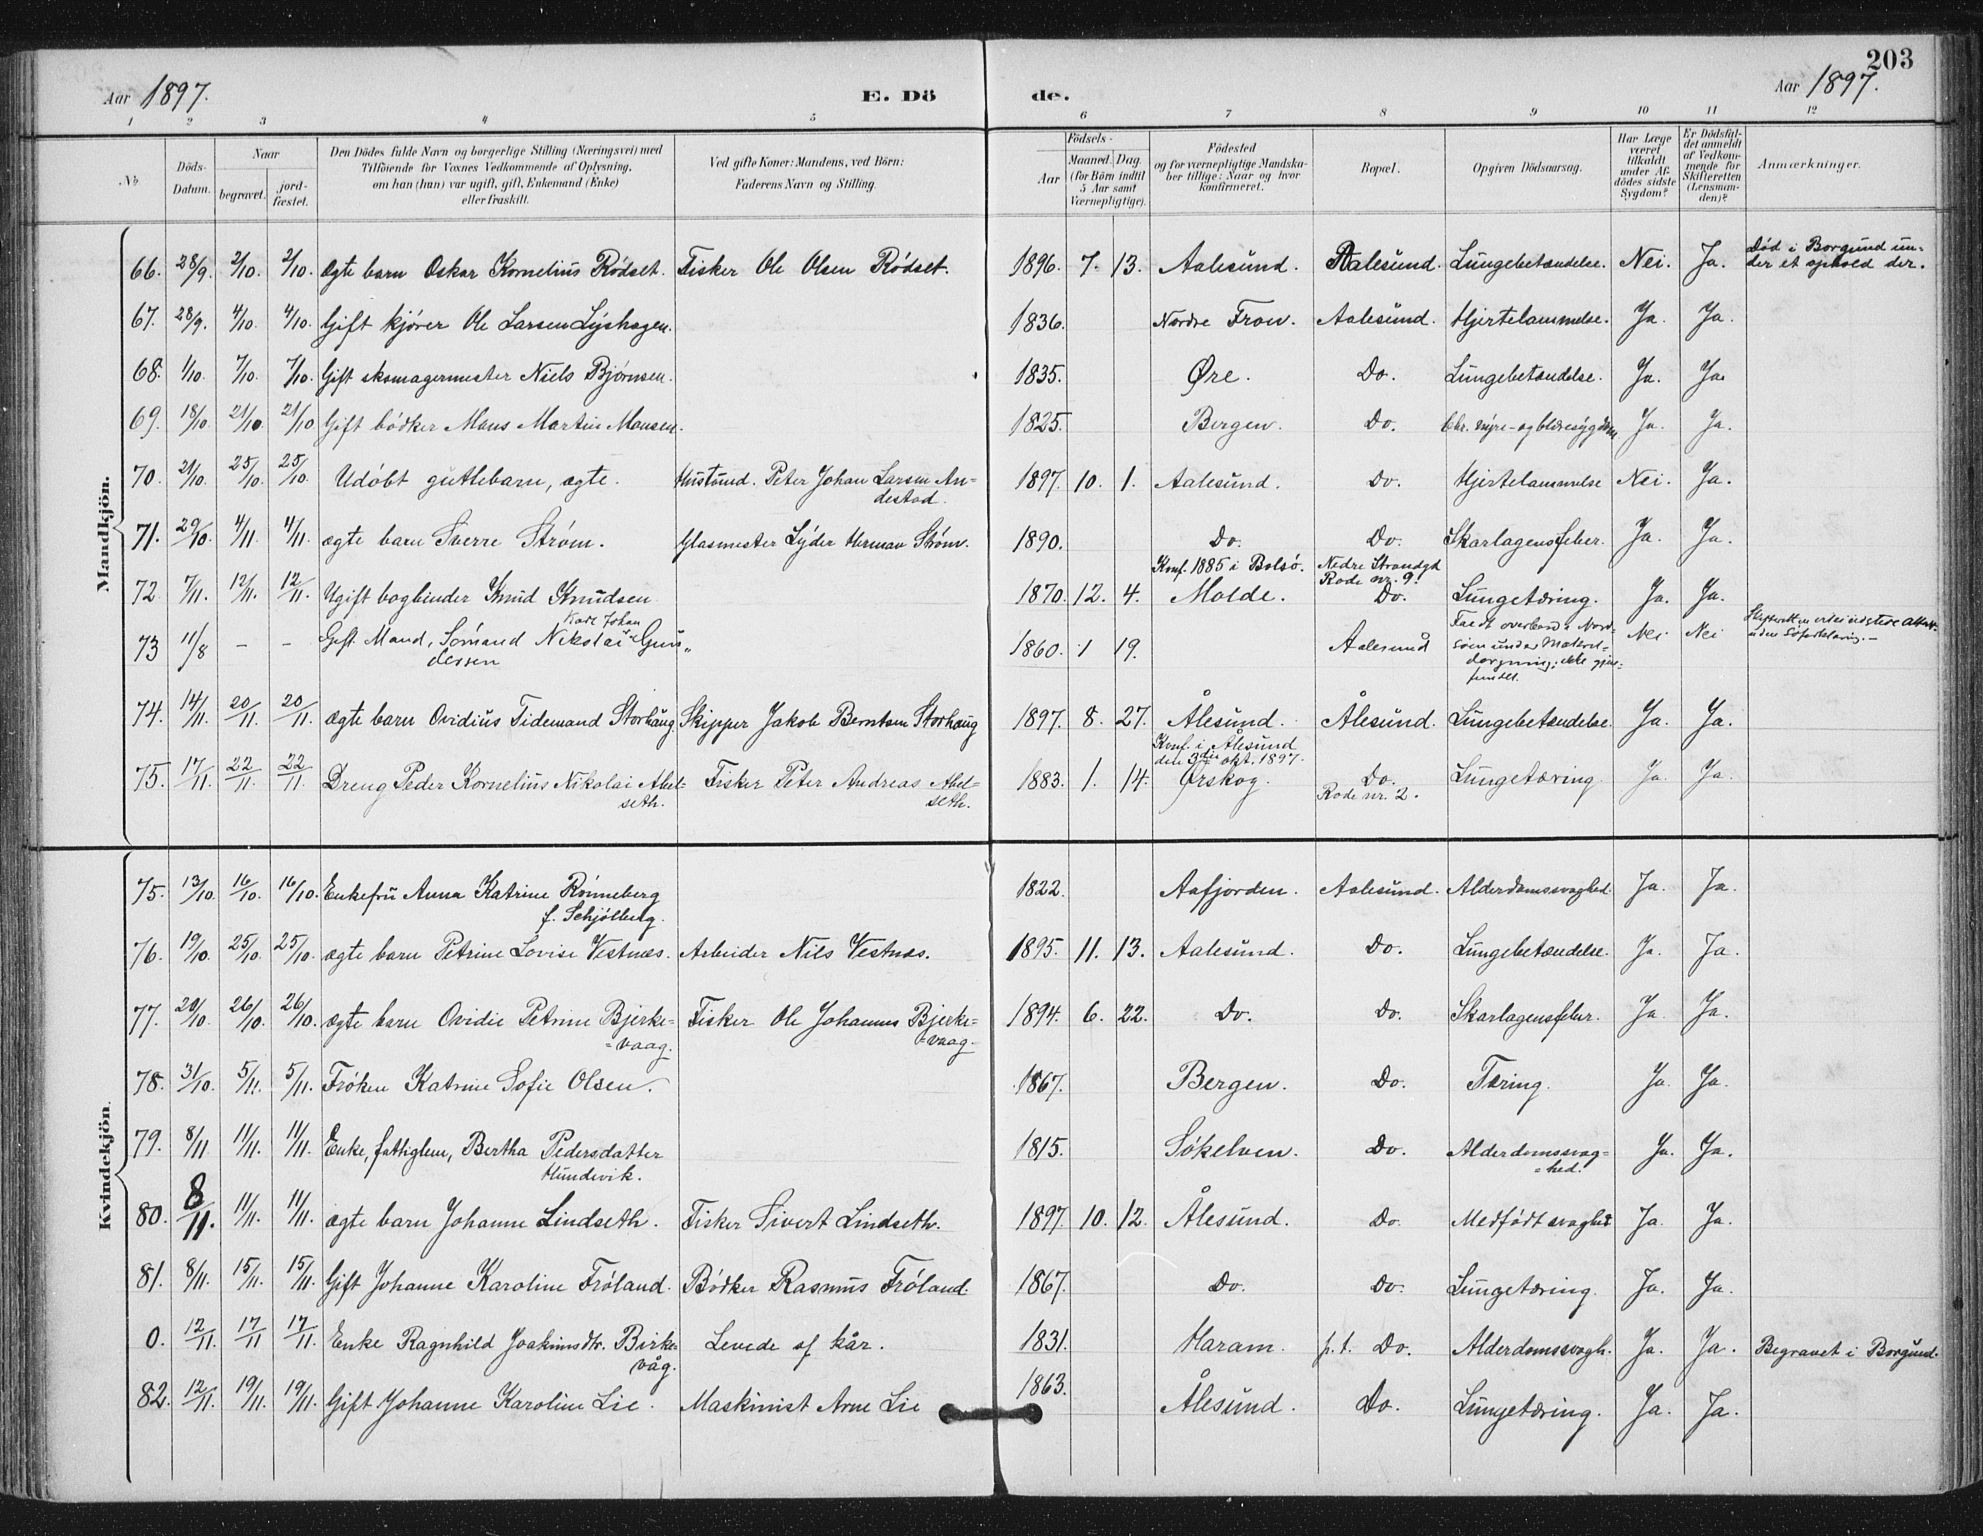 203
Aar 1897. E. Dö de. Aar 1897.
1 2 3 4 5 6 7 8 9 10 11 12
No Döds-Datum. Naar begravet. jord-fæstet. Den Dödes fulde Navn og borgerlige Stilling (Næringsvei) med Tilföiende for Voxnes Vedkommende af Oplysning, om han (hun) var ugift, gift, Enkemand (Enke) eller fraskilt. Ved gifte Koner: Mandens, ved Börn: Faderens Navn og Stilling. Födsels- Aar Maaned. Dag. (for Börn indtil 5 Aar samt Værnepligtige). Födested og for værnepligtige Mandskaber tillige: Naar og hvor konfirmeret. Bopæl. Opgiven Dödsaarsag. Har Læge været tilkaldt under Afdödes sidste Sygdom? Er Dödsfaldet anmeldt af Vedkommende for Skifteretten (Lensmanden)? Anmærkninger.
Mandkjön.
66. 28/9. 2/10. 2/10. Ægte barn Oskar Kornelius Rødset. Fisker Ole Olsen Rødset. 1896. 7. 13. Aalesund. Aalesund. Lungebetændelse. Nei. Ja. Død i Borgund un-
der et ophold der.
67. 28/9. 4/10. 4/10. Gift kjører Ole Larsen Lyshagen. 1836. Nordre Fron. Aalesund. Hjertelammelse. Ja. Ja.
68. 1/10. 7/10. 7/10. Gift skomagermester Niels Bjørnsen. 1835. Øre. Do. Lungebetændelse. Ja. Ja.
69. 18/10. 21/10. 21/10 Gift bødker Mons Martin Monsen. 1825. Bergen. Do. Chr. nyre- og blæresygdom Ja. Ja.
70. 21/10. 25/10. 25/10. Udøbt guttebarn, ægte. Husmand. Peter Johan Larsen An-
destad. 1897. 10. 1. Aalesund. Do. Hjertelammelse Nei. Ja.
71. 29/10. 4/11. 4/11. ægte barn Sverre Strøm. Glasmester Lyder Herman Strøm. 1890. Do. Do. Skarlagensfeber. Ja. Ja.
Konf. 1885 i Bolsø. Nedre Strandgd
Rode nr. 9.
72 7/11. 12/11. 12/11. Ugift bogbinder Knud Knudsen 1870. 12. 4. Molde. Do. Lungetæring. Ja. Ja.
Karl Johan
73 11/8 - - Gift Mand, Sømand Nikolai Gun-
dersen 1860. 1 19. Aalesund Faldt overbord i Nord-
søen under Makrel-
dorgning; ikke gjen-
fundet. Nei Nei
74. 14/11. 20/11. 20/11. ægte barn Ovidius Tidemand Storhaug. Skipper Jakob Berntsen Storhaug 1897. 8. 27. Ålesund. Ålesund. Lungebetændelse. Ja. Ja.
Konf. i Ålesund
den 3die okt. 1897.
75. 17/11. 22/11. 22/11. Dreng Peder Kornelius Nikolai Abel-
seth. Fisker Peter Andreas Abel-
seth. 1883. 1. 14. Ørskog. Do.
Rode nr. 2. Lungetæring. Ja. Ja.
Kvindekjön.
75. 13/10. 16/10. 16/10. Enkefru Anna Katrine Rønneberg
f. Schjølberg. 1822. Aafjorden. Aalesund. Alderdomssvaghed. Ja. Ja.
76. 19/10. 25/10. 25/10. ægte barn Petrine Lovise Vestnæs. Arbeider Nils Vestnæs. 1895. 11. 13. Aalesund. Do. Lungebetændelse. Ja. Ja.
77. 20/10. 26/10. 26/10. ægte barn Ovidie Petrine Bjerke-
-vaag. Fisker Ole Johannes Bjerke-
-vaag. 1894. 6. 22. Do. Do. Skarlagensfeber. Ja. Ja.
78. 31/10. 5/11. 5/11. Frøken Katrine Sofie Olsen. 1867. Bergen. Do. Tæring. Ja. Ja.
79. 8/11 11/11. 11/11. Enke, fattiglem, Bertha Pedersdatter
Hundevik. 1815. Søkelven. Do. Alderdomssvag-
-hed. Ja. Ja.
80. 8/11. 11/11. 11/11. ægte barn Johanne Lindseth. Fisker Sivert Lindseth. 1897. 10. 12. Ålesund. Do. Medfødt svaghed Ja. Ja.
81. 8/11. 15/11. 15/11. Gift Johanne Karoline Frøland. Bødker Rasmus Frøland. 1867. Do. Do. Lungetæring. Ja. Ja.
0. 12/11. 17/11 17/11. Enke Ragnhild Joakimsdtr. Birke-
våg. Levede af kår. 1831. Haram. p.t. Do. Alderdomssvagh. Ja. Ja. Begravet i Borgund.
82. 12/11. 19/11. 19/11. Gift Johanne Karoline Lie. Maskinist Arne Lie 1863. Ålesund. Do. Lungetæring. Ja. Ja.